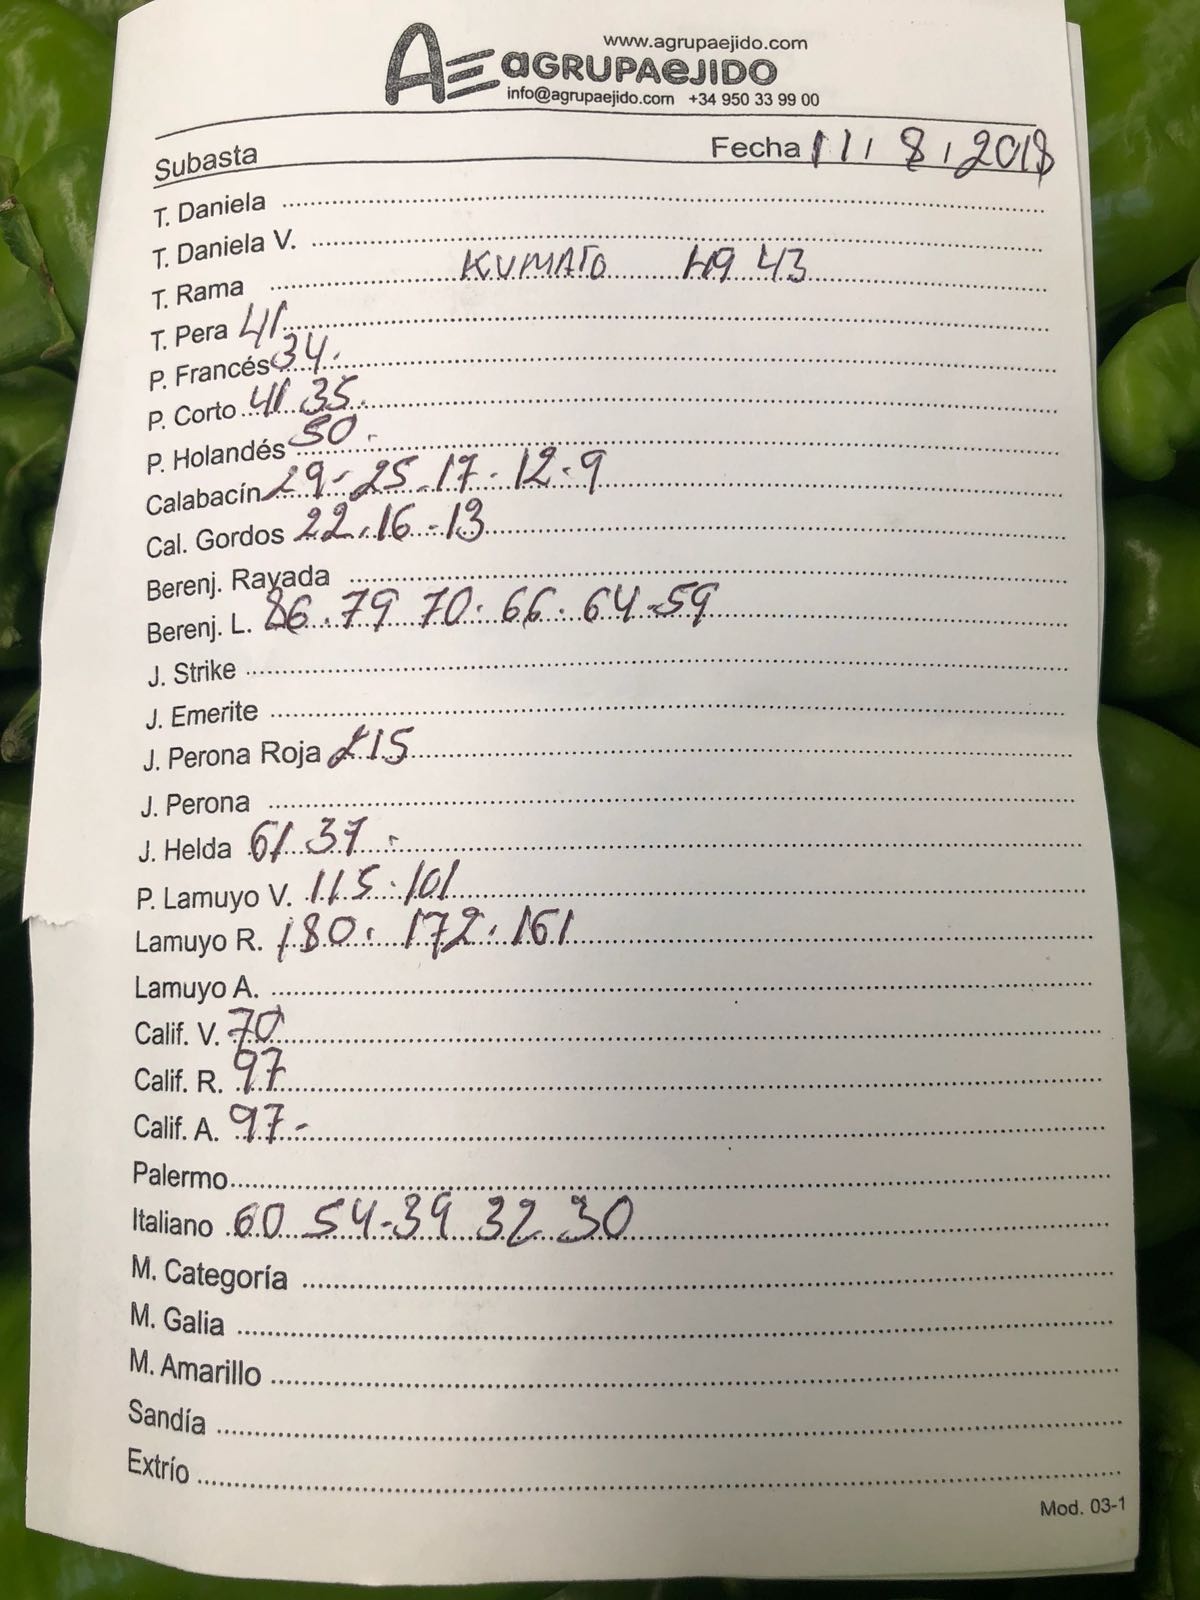 www.agrupaejido.com
AE aGRUPAeJIDO
info@agrupaejido.com +34 950 33 99 00
Subasta Fecha 11 / 8 / 2018
T. Daniela
T. Daniela V.
T. Rama KUMATO 49 43
T. Pera 41
P. Francés 34.
P. Corto 41 35.
P. Holandés 50.
Calabacín 29-25-17-12-9
Cal. Gordos 22.16-13
Berenj. Rayada
Berenj. L. 86.79 70.66.64-59
J. Strike
J. Emerite
J. Perona Roja 215
J. Perona
J. Helda 61 37.
P. Lamuyo V. 115.101
Lamuyo R. 180.172.161
Lamuyo A.
Calif. V. 70
Calif. R. 97
Calif. A. 97-
Palermo
Italiano 60 54-39 32 30
M. Categoría
M. Galia
M. Amarillo
Sandía
Extrío
Mod. 03-1